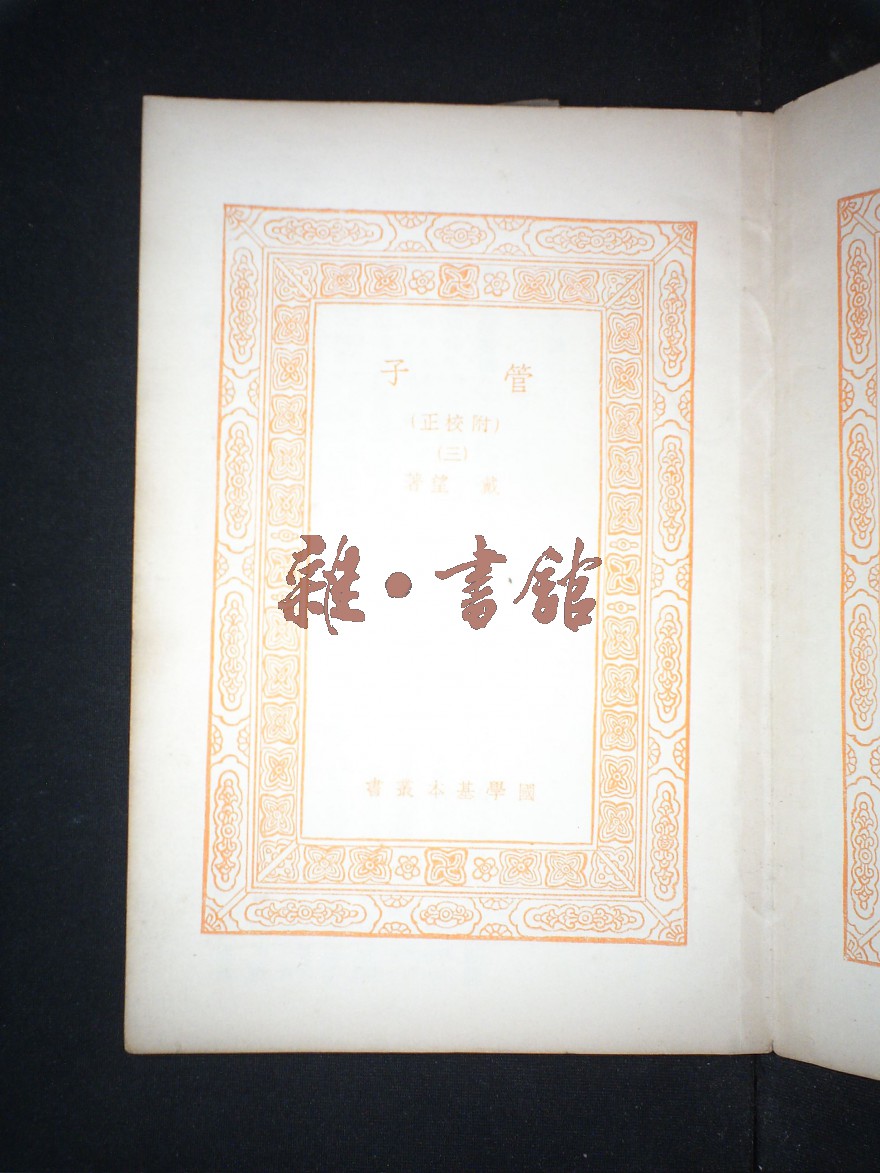 管子
(附校正)
(三)
戴望著
雜·書館
國學基本叢書